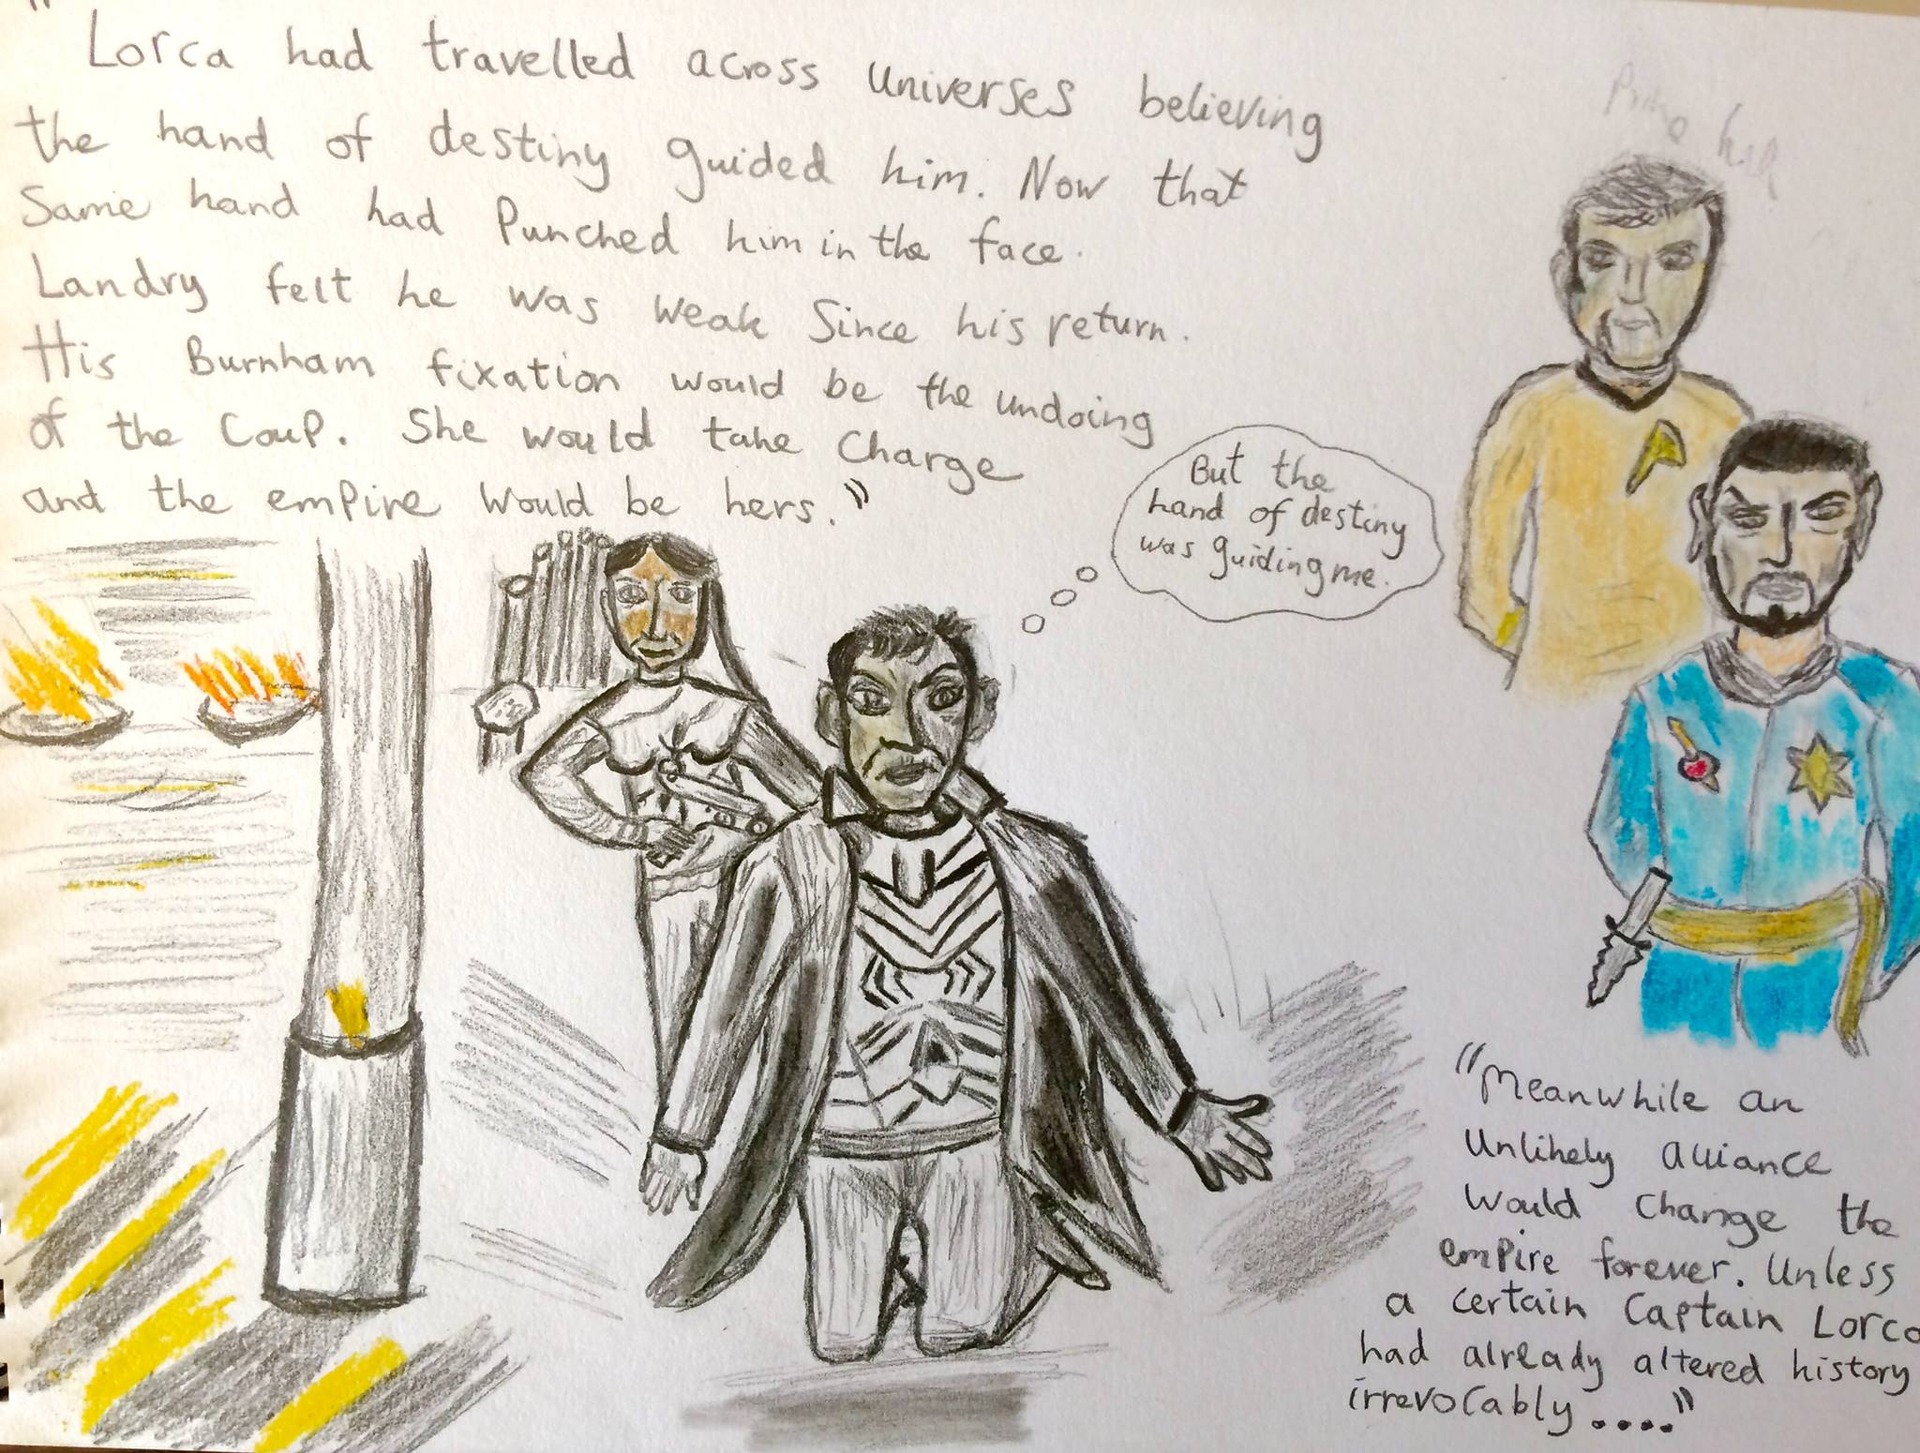 "
Lorca had travelled across universes believing
the hand of destiny guided him. Now that
Same hand had Punched him in the face.
Landry felt he was weak Since his return.
His Burnham fixation would be the undoing
of the Coup. She would take Charge
and the empire would be hers."
But the
hand of destiny
was guiding me.
"Meanwhile an
Unlikely alliance
would change the
empire forever. Unless
a certain Captain Lorca
had already altered history
irrevocably ...."